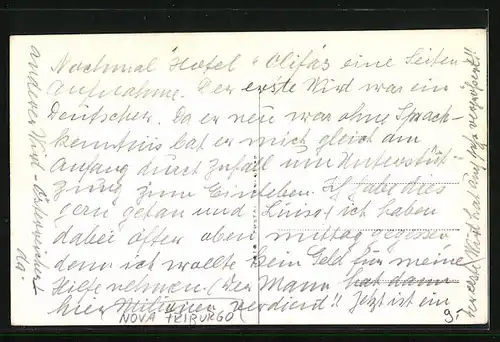 Nochmal Hotel "Olifas eine Seiten-
aufnahme. Der erste Wirt war ein
Deutscher. Da er neu war ohne Sprach-
kenntnis bat er mich gleich am
Anfang durch Zufall um Unterstüt-
zung zum Einleben. Ich habe dies
gern getan und Luise + ich haben
dabei öfter oben mittag gegessen
denn ich wollte kein Geld für meine
Hilfe nehmen. (Der Mann hat dann
hier Millionen verdient!! Jetzt ist ein
anderer Wirt - Österreicher
da.
NOVA FRIBURGO
9,-